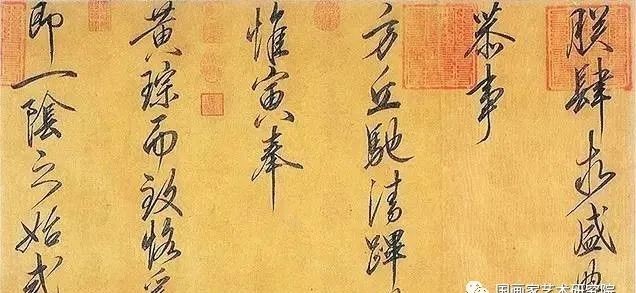 朕肆求盛典
恭事
方丘馳清蹕
惟寅奉
黃琮而致恪爰
即一陰之始式
国画家艺术研究院